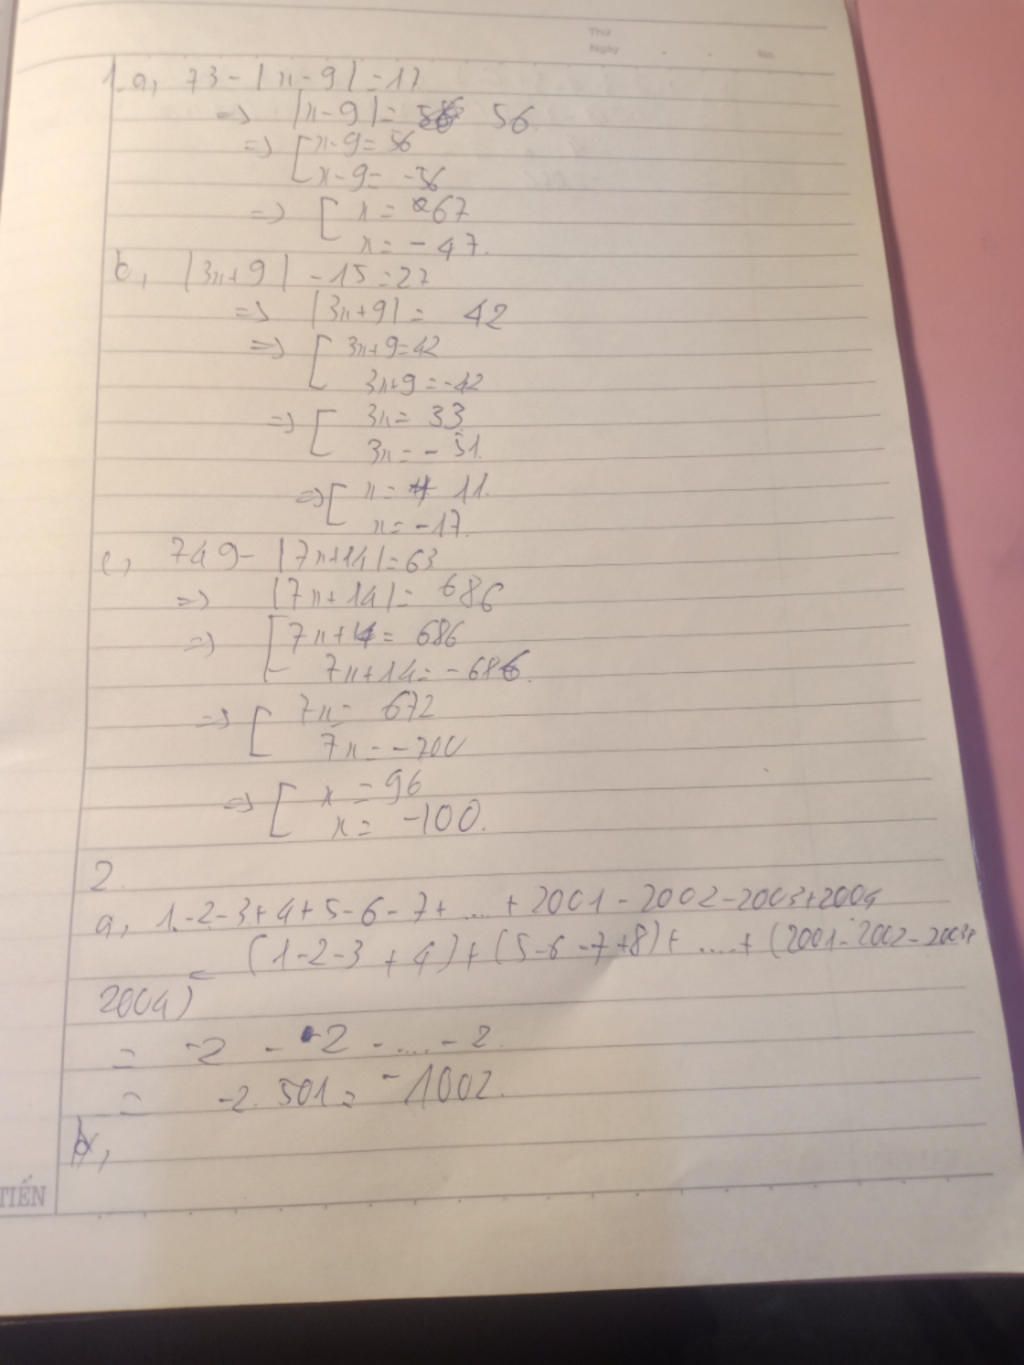 Thứ
Ngày . . No
1.a, 73 - |x - 9| = 17
=> |x - 9| = 56
=> [ x - 9 = 56
x - 9 = -56
=> [ x = 67
x = - 47.
b, |3x + 9| - 15 = 27
=> |3x + 9| = 42
=> [ 3x + 9 = 42
3x + 9 = -42
=> [ 3x = 33
3x = - 51.
=> [ x = 11.
x = -17.
c, 749 - |7x + 14| = 63
=> |7x + 14| = 686
=> [ 7x + 14 = 686
7x + 14 = -686.
=> [ 7x = 672
7x = -700
=> [ x = 96
x = -100.
2.
a, 1 - 2 - 3 + 4 + 5 - 6 - 7 + .... + 2001 - 2002 - 2003 + 2004
= (1 - 2 - 3 + 4) + (5 - 6 - 7 + 8) + .... + (2001 - 2002 - 2003 +
2004)
= -2 - 2 - .... - 2.
= -2. 501 = -1002.
b,
TIẾN